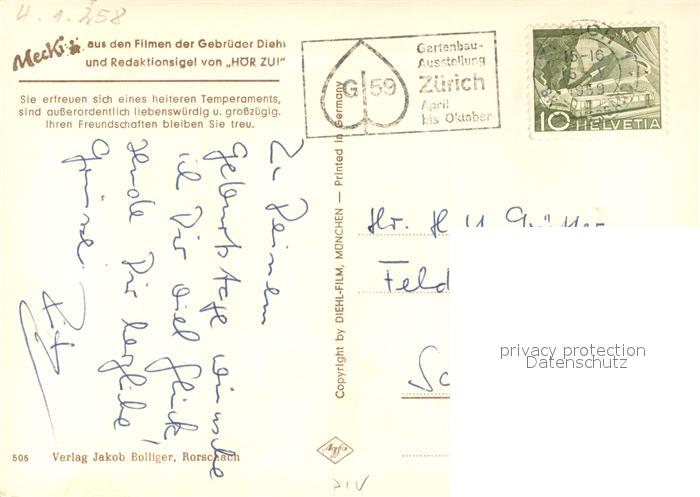 4.1.258
Mecki aus den Filmen der Gebrüder Diehl
und Redaktionsigel von „HÖR ZU!"
Sie erfreuen sich eines heiteren Temperaments,
sind außerordentlich liebenswürdig u. großzügig.
Ihren Freundschaften bleiben Sie treu.
G 59
Gartenbau-
Ausstellung
Zürich
April
bis Oktober
15-16
1959
10 HELVETIA
Zu Deinem
Geburtstage wünsche
ich Dir viel Glück
sende Dir herzliche
Grüsse!
Copyright by DIEHL-FILM, MÜNCHEN — Printed in Germany
Hr. H
Feld
Sc
privacy protection
Datenschutz
506 Verlag Jakob Bolliger, Rorschach
Agfa